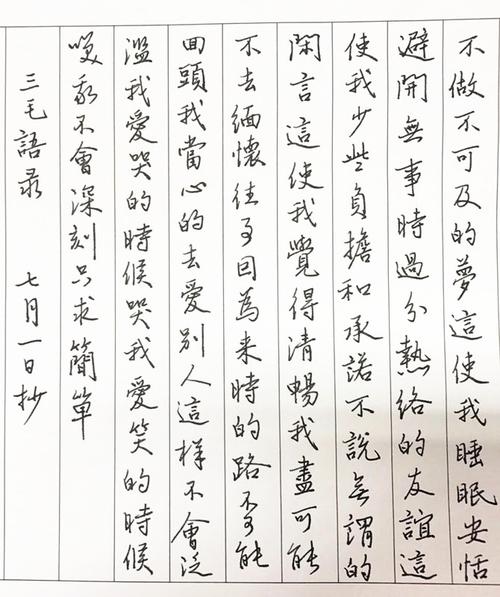 不做不可及的夢這使我睡眠安恬
避開無事時過分熱絡的友誼這
使我少些負擔和承諾不說無謂的
閑言這使我覺得清暢我盡可能
不去緬懷往事因為来時的路不可能
回頭我當心的去愛别人這樣不會泛
濫我愛哭的時候哭我愛笑的時候
笑我不會深刻只求簡單
三毛語录 七月一日抄